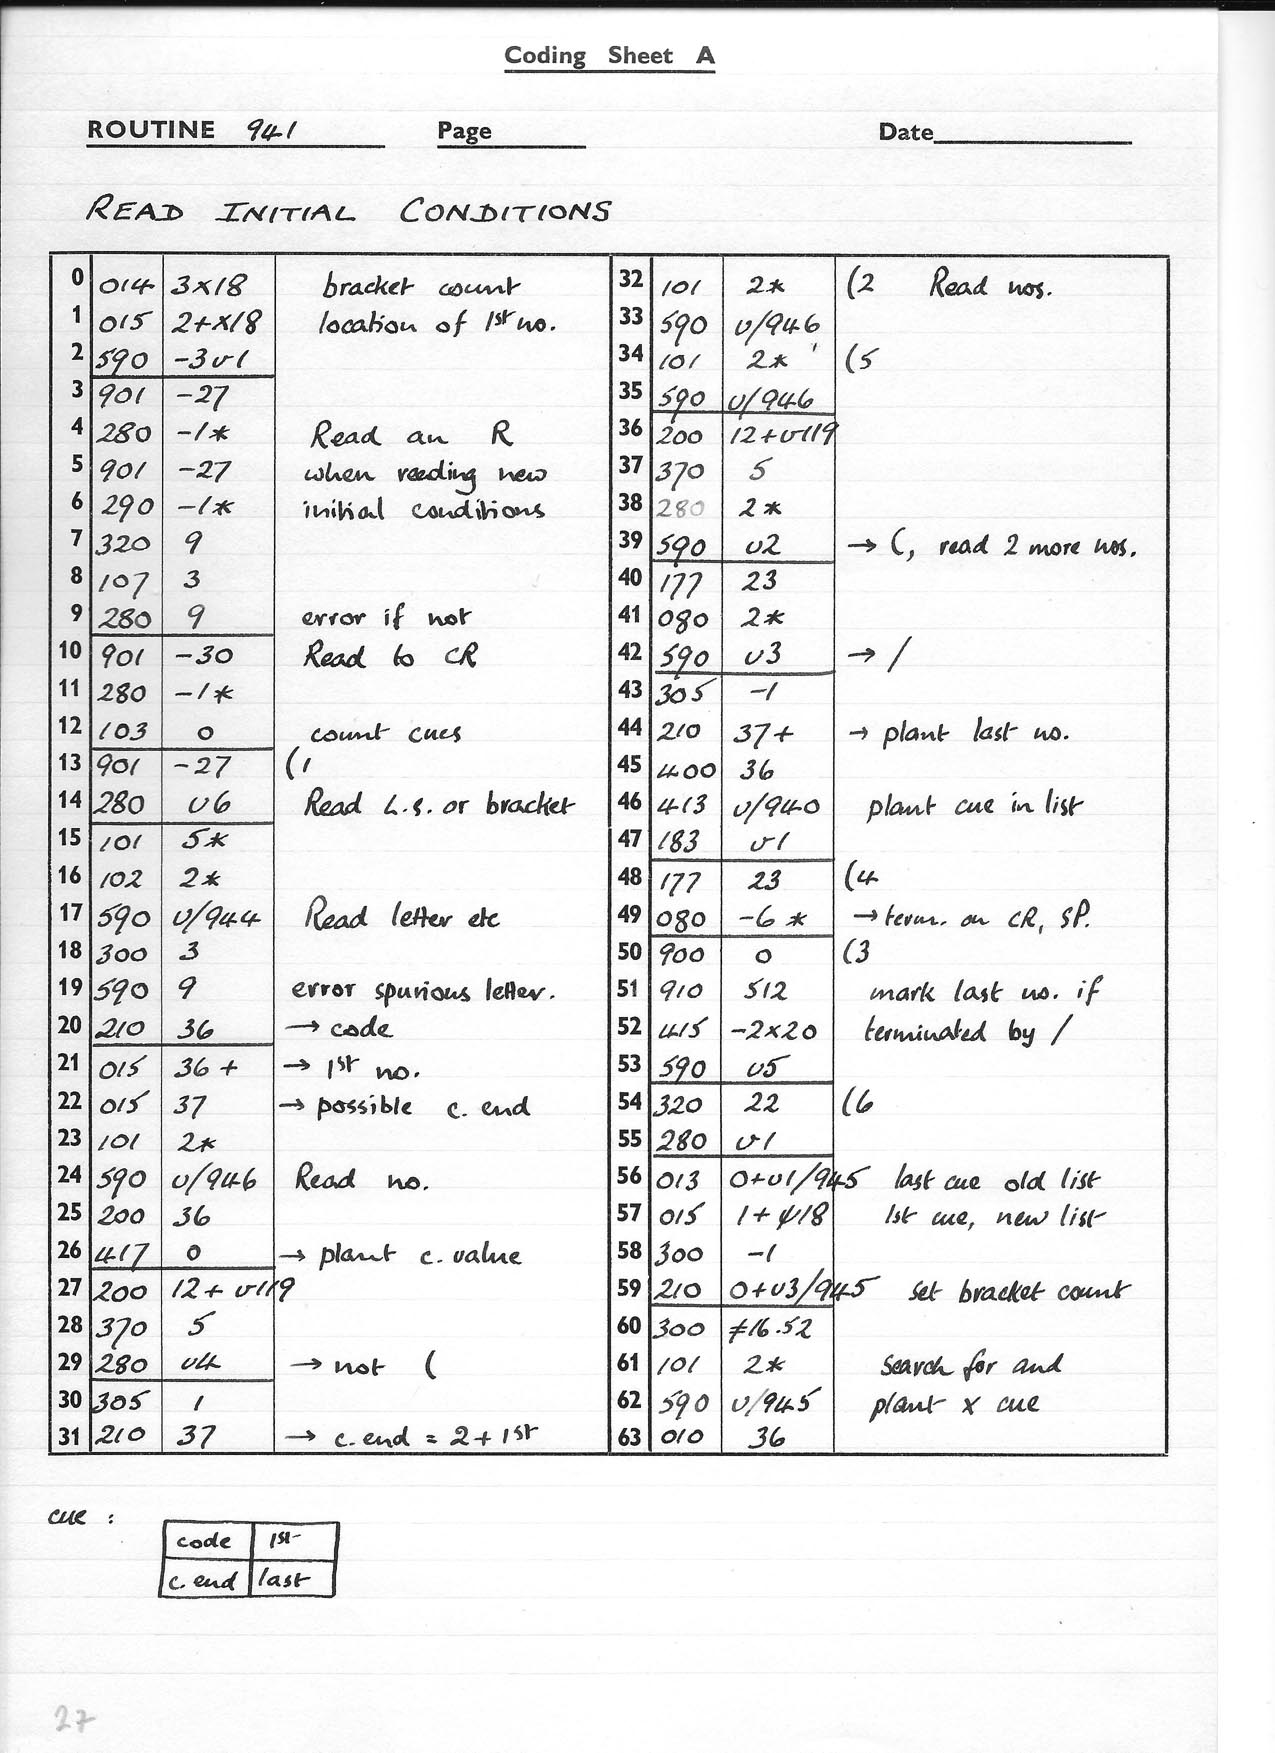 Coding Sheet A
ROUTINE 941 Page Date
READ INITIAL CONDITIONS
0 014 3x18 bracket count
1 015 2+x18 location of 1st no.
2 590 -3v1
3 901 -27
4 280 -1* Read an R
5 901 -27 when reading new
6 290 -1* initial conditions
7 320 9
8 107 3
9 280 9 error if not
10 901 -30 Read to CR
11 280 -1*
12 103 0 count cues
13 901 -27 (1
14 280 v6 Read L.S. or bracket
15 101 5*
16 102 2*
17 590 v/944 Read letter etc
18 300 3
19 590 9 error spurious letter.
20 210 36 → code
21 015 36+ → 1st no.
22 015 37 → possible c. end
23 101 2*
24 590 v/946 Read no.
25 200 36
26 417 0 → plant c. value
27 200 12+v119
28 370 5
29 280 v4 → not (
30 305 1
31 210 37 → c.end = 2+1st
32 101 2* (2 Read nos.
33 590 v/946
34 101 2* (5
35 590 v/946
36 200 12+v119
37 370 5
38 280 2*
39 590 v2 → (, read 2 more nos.
40 177 23
41 080 2*
42 590 v3 → /
43 305 -1
44 210 37+ → plant last no.
45 400 36
46 413 v/940 plant cue in list
47 183 v1
48 177 23 (4
49 080 -6* → term. on CR, SP.
50 900 0 (3
51 910 512 mark last no. if
52 415 -2x20 terminated by /
53 590 v5
54 320 22 (6
55 280 v1
56 013 0+v1/945 last cue old list
57 015 1+ψ18 1st cue, new list
58 300 -1
59 210 0+v3/945 set bracket count
60 300 ≠16.52
61 101 2* Search for and
62 590 v/945 plant x cue
63 010 36
cue :
code 1st
c. end last
27